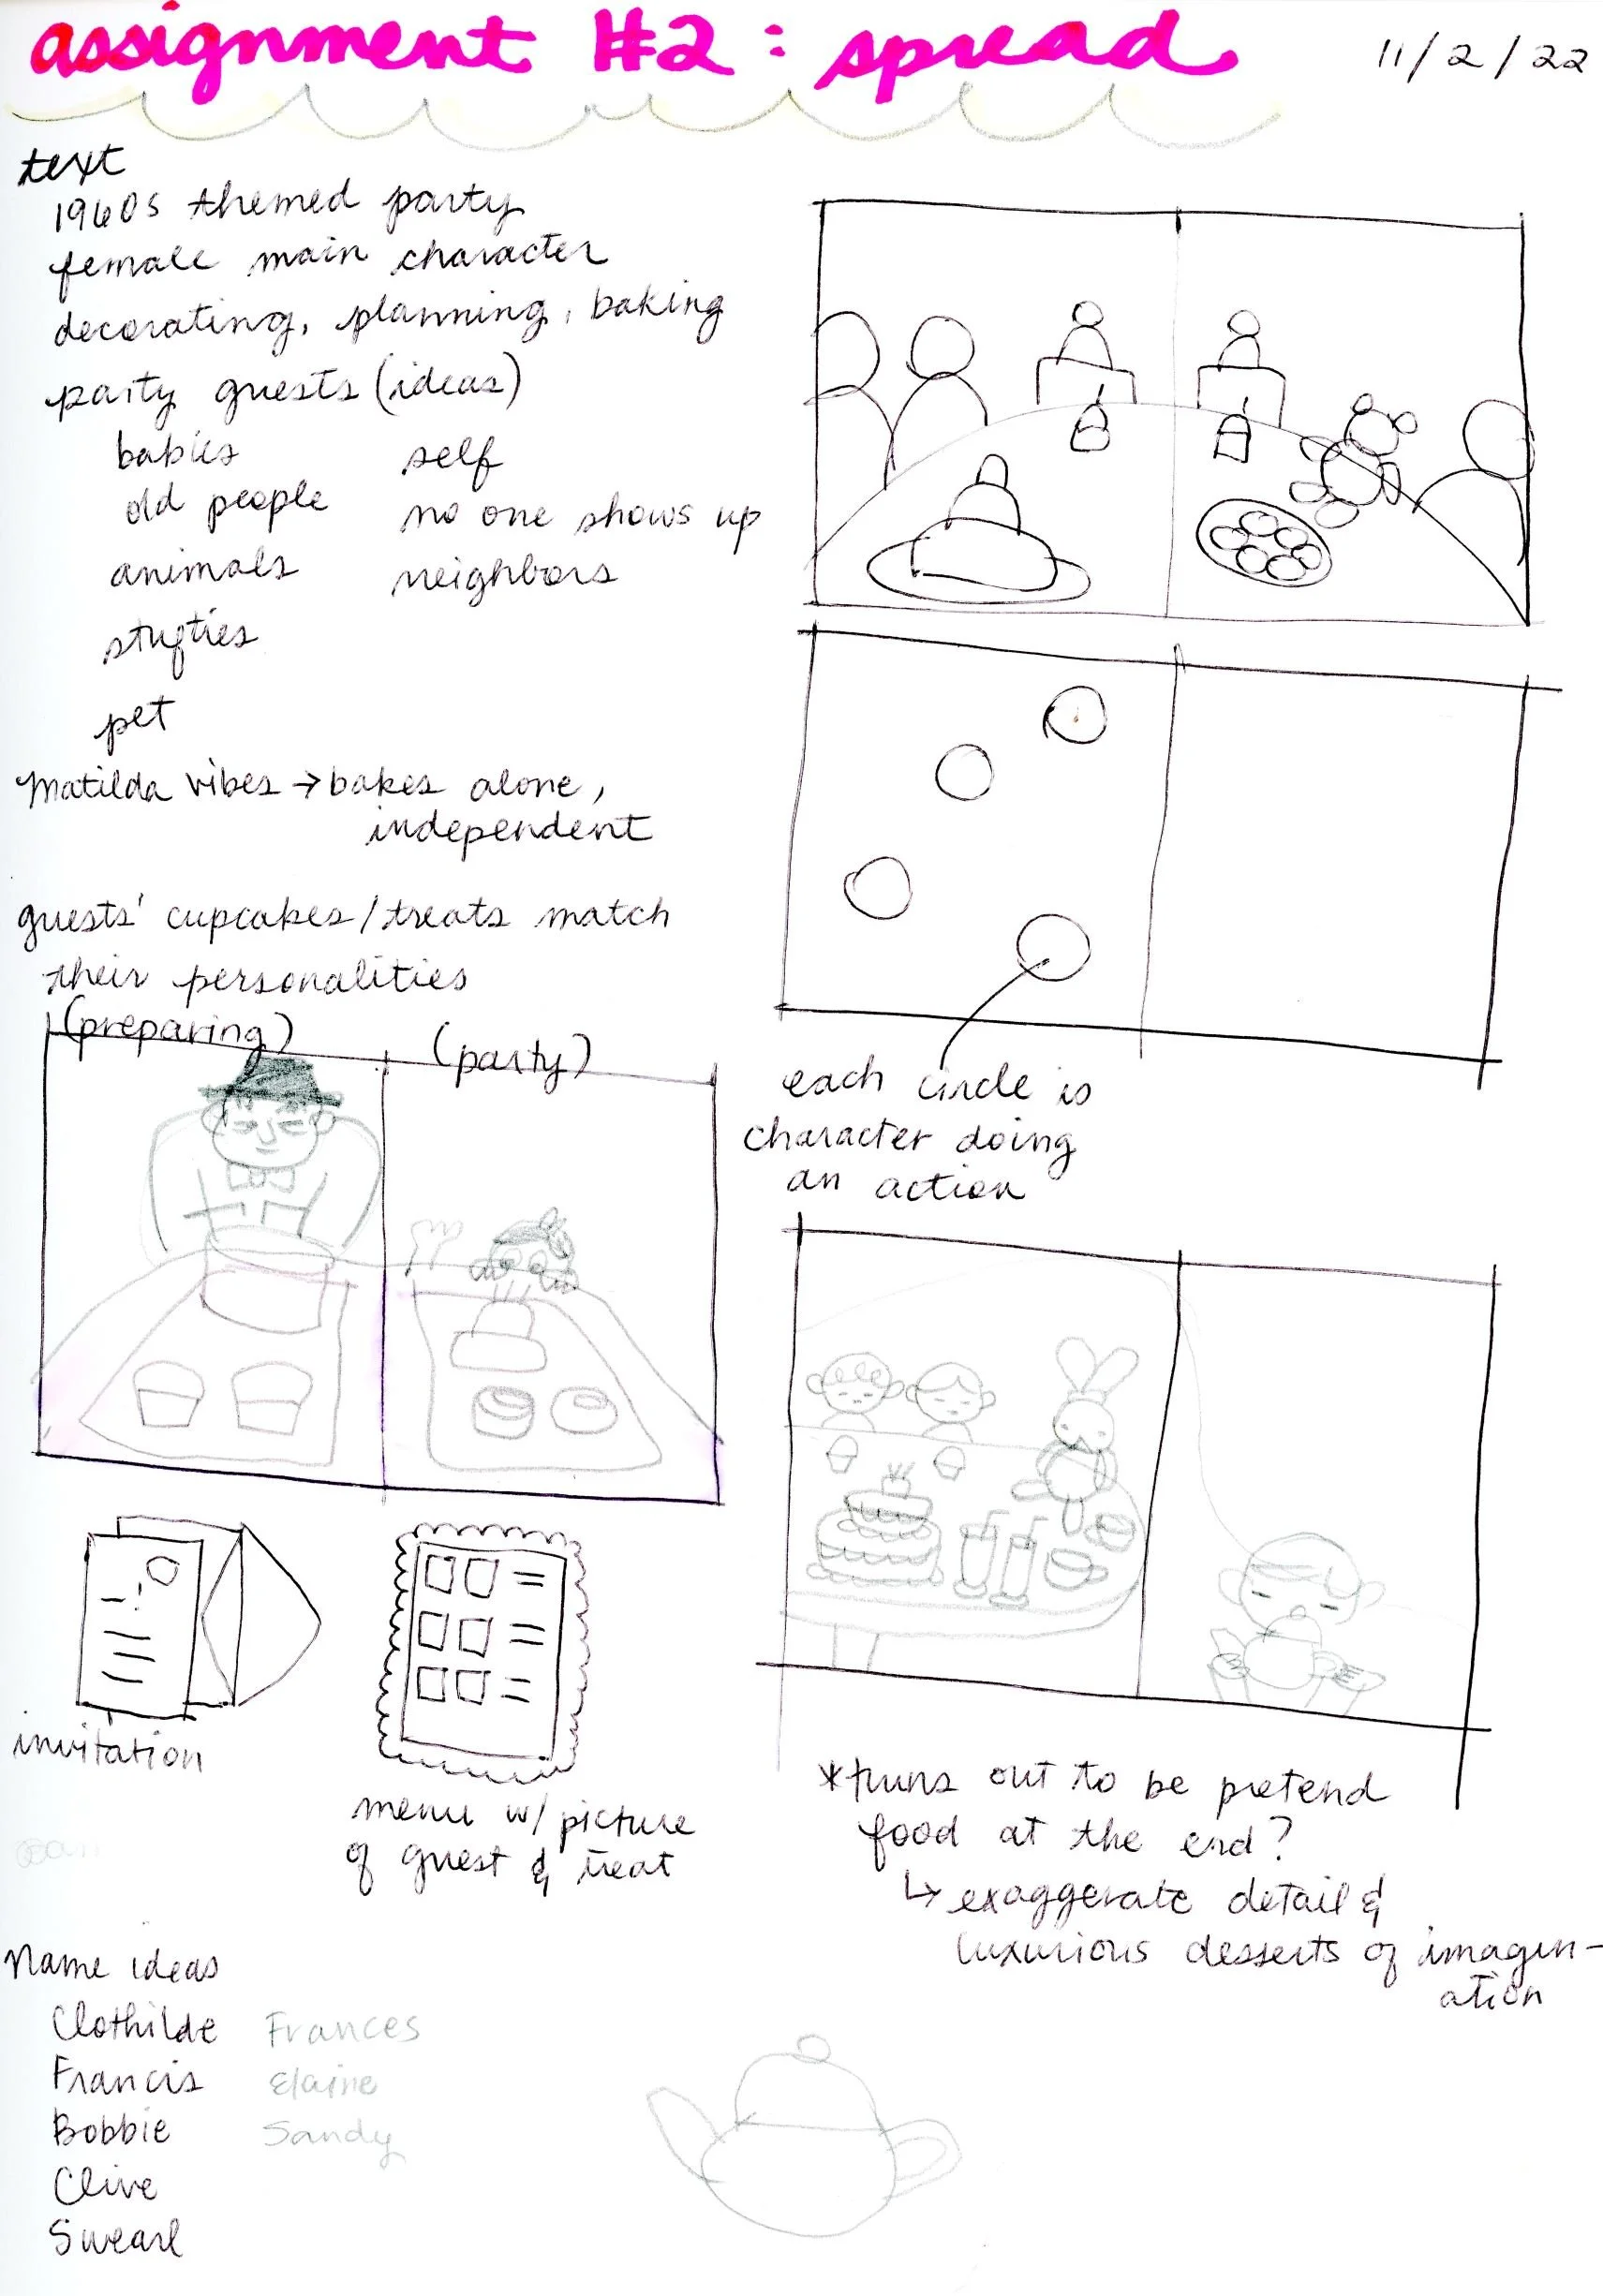 assignment #2: spread
11/2/22
text
1960s themed party
female main character
decorating, planning, baking
party guests (ideas)
babies self
old people no one shows up
animals neighbors
stuffies
pet
Matilda vibes → bakes alone,
independent
guests' cupcakes/treats match
their personalities
(preparing) (party)
each circle is
character doing
an action
invitation
menu w/ picture
of guest & treat
*turns out to be pretend
food at the end?
↳ exaggerate detail &
luxurious desserts of imagin-
ation
Name ideas
Clothilde Frances
Francis Elaine
Bobbie Sandy
Clive